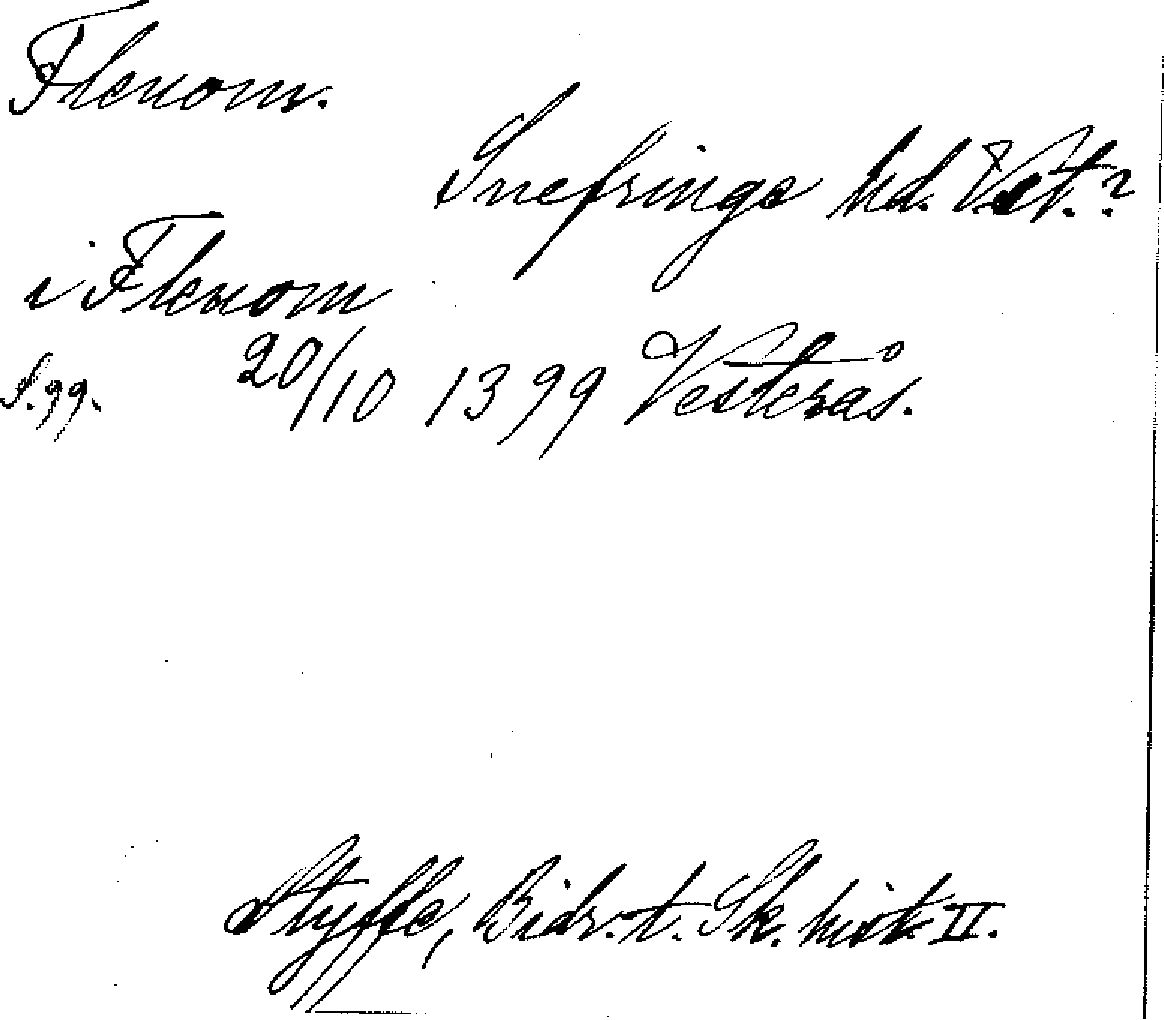 Flenom.
Snefringe hd. Vst.?
i Flenom
S. 99. 20/10 1399 Vesterås.
Styffe, Bidr. t. Sk. hist. II.